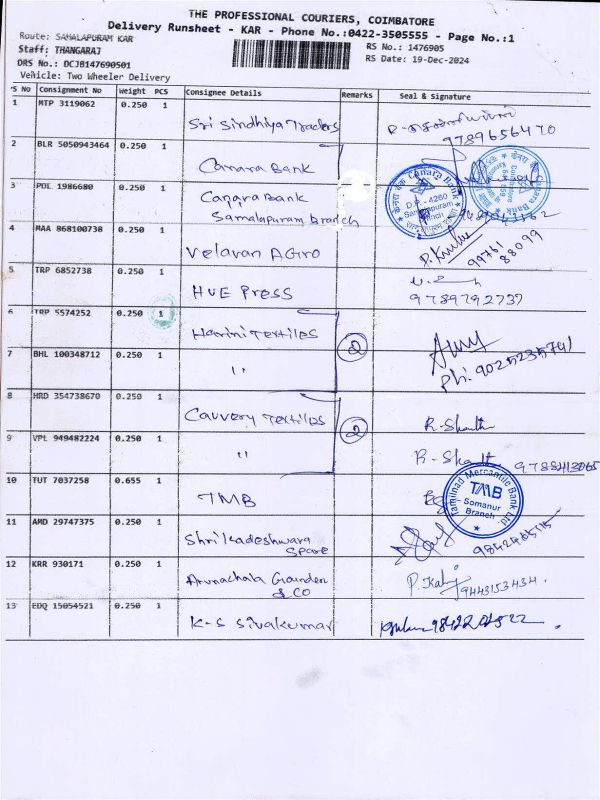 THE PROFESSIONAL COURIERS, COIMBATORE
Delivery Runsheet - KAR - Phone No.:0422-3505555 - Page No.:1
Route: SAMALAPURAM KAR
RS No.: 1476905
Staff: THANGARAJ
RS Date: 19-Dec-2024
DRS No.: DCJB147690501
Vehicle: Two Wheeler Delivery
S No Consignment No Weight PCS Consignee Details Remarks Seal & Signature
1 MTP 3119062 0.250 1 Sri Sindhiya Traders
9789656470
2 BLR 5050943464 0.250 1 Canara Bank
3 POL 1986680 0.250 1 Canara Bank
Samalapuram Branch
Canara Bank
D.P.- 4260
Samalapuram
Branch
4 MAA 868100738 0.250 1 Velavan AGro
99761
88099
5 TRP 6852738 0.250 1 HUE Press
9789792737
6 TRP 5574252 0.250 1 Harini Textiles
2
7 BHL 100348712 0.250 1 "
Ph: 9025235741
8 HRD 354738670 0.250 1 Cauvery Textiles
2
9 VPL 949482224 0.250 1 "
10 TUT 7037258 0.655 1 TMB
Tamilnad Mercantile Bank Ltd.
TMB
Somanur
Branch
11 AMD 29747375 0.250 1 Shri Kadeshwara
Spare
12 KRR 930171 0.250 1 Arunachala Gounden
& CO
9443153434
13 EDQ 15054521 0.250 1 K-S Sivakumar